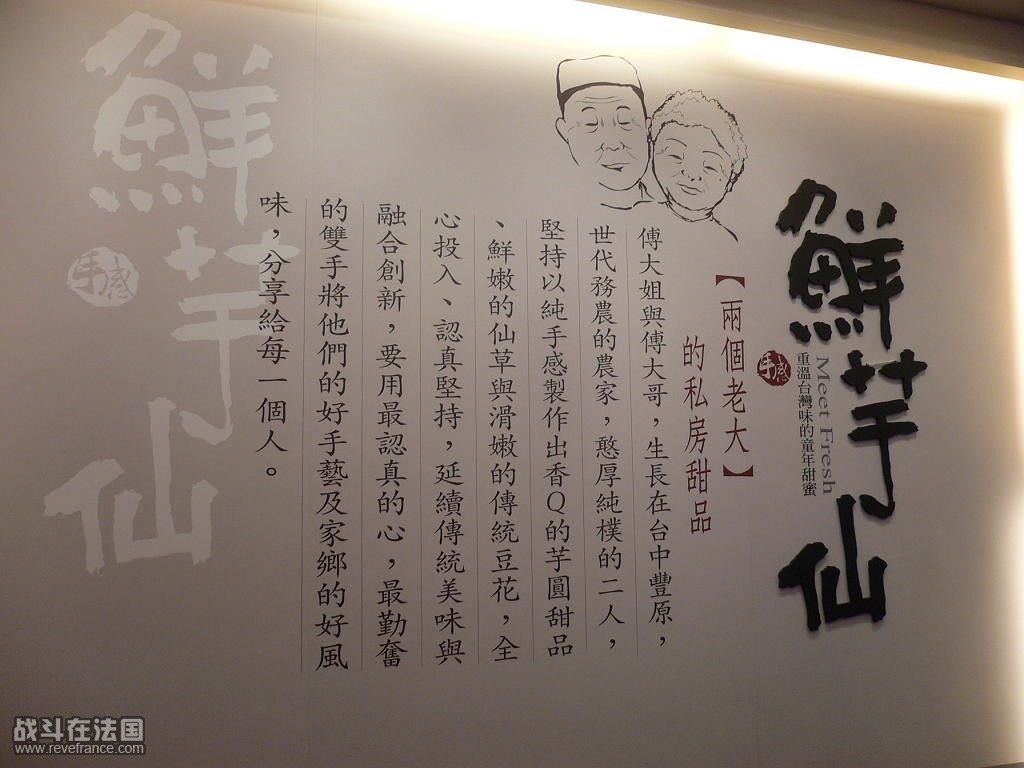 鮮芋仙
Meet Fresh
重溫台灣味的童年甜蜜
手感
【兩個老大】
的私房甜品
傅大姐與傅大哥，生長在台中豐原，
世代務農的農家，憨厚純樸的二人，
堅持以純手感製作出香Q的芋圓甜品
、鮮嫩的仙草與滑嫩的傳統豆花，全
心投入、認真堅持，延續傳統美味與
融合創新，要用最認真的心，最勤奮
的雙手將他們的好手藝及家鄉的好風
味，分享給每一個人。
鮮芋仙
手感
战斗在法国
www.revefrance.com